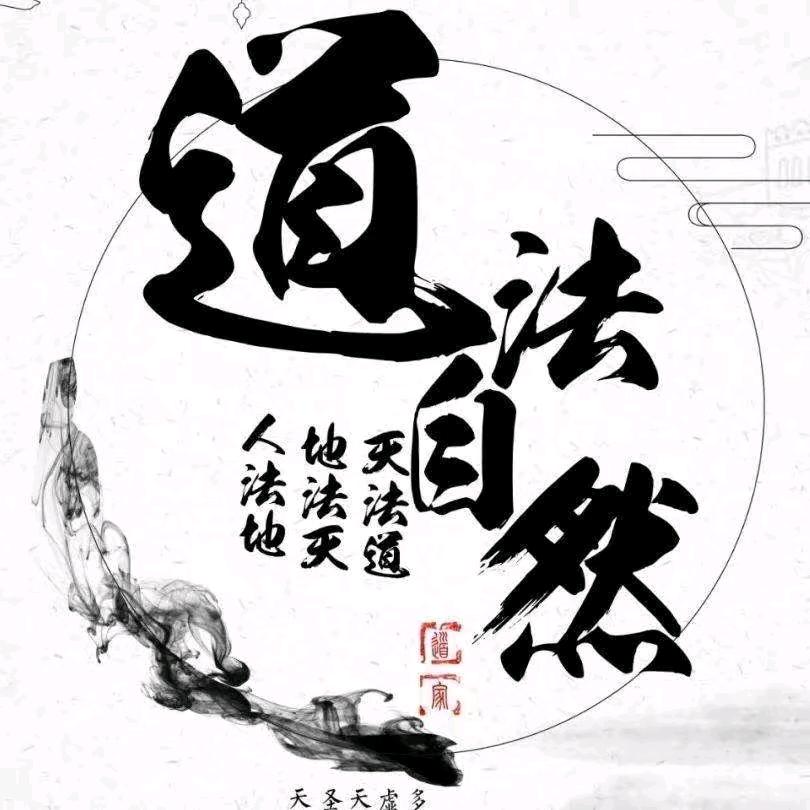 道法自然
人法地
地法天
天法道
道家
天圣天虚多